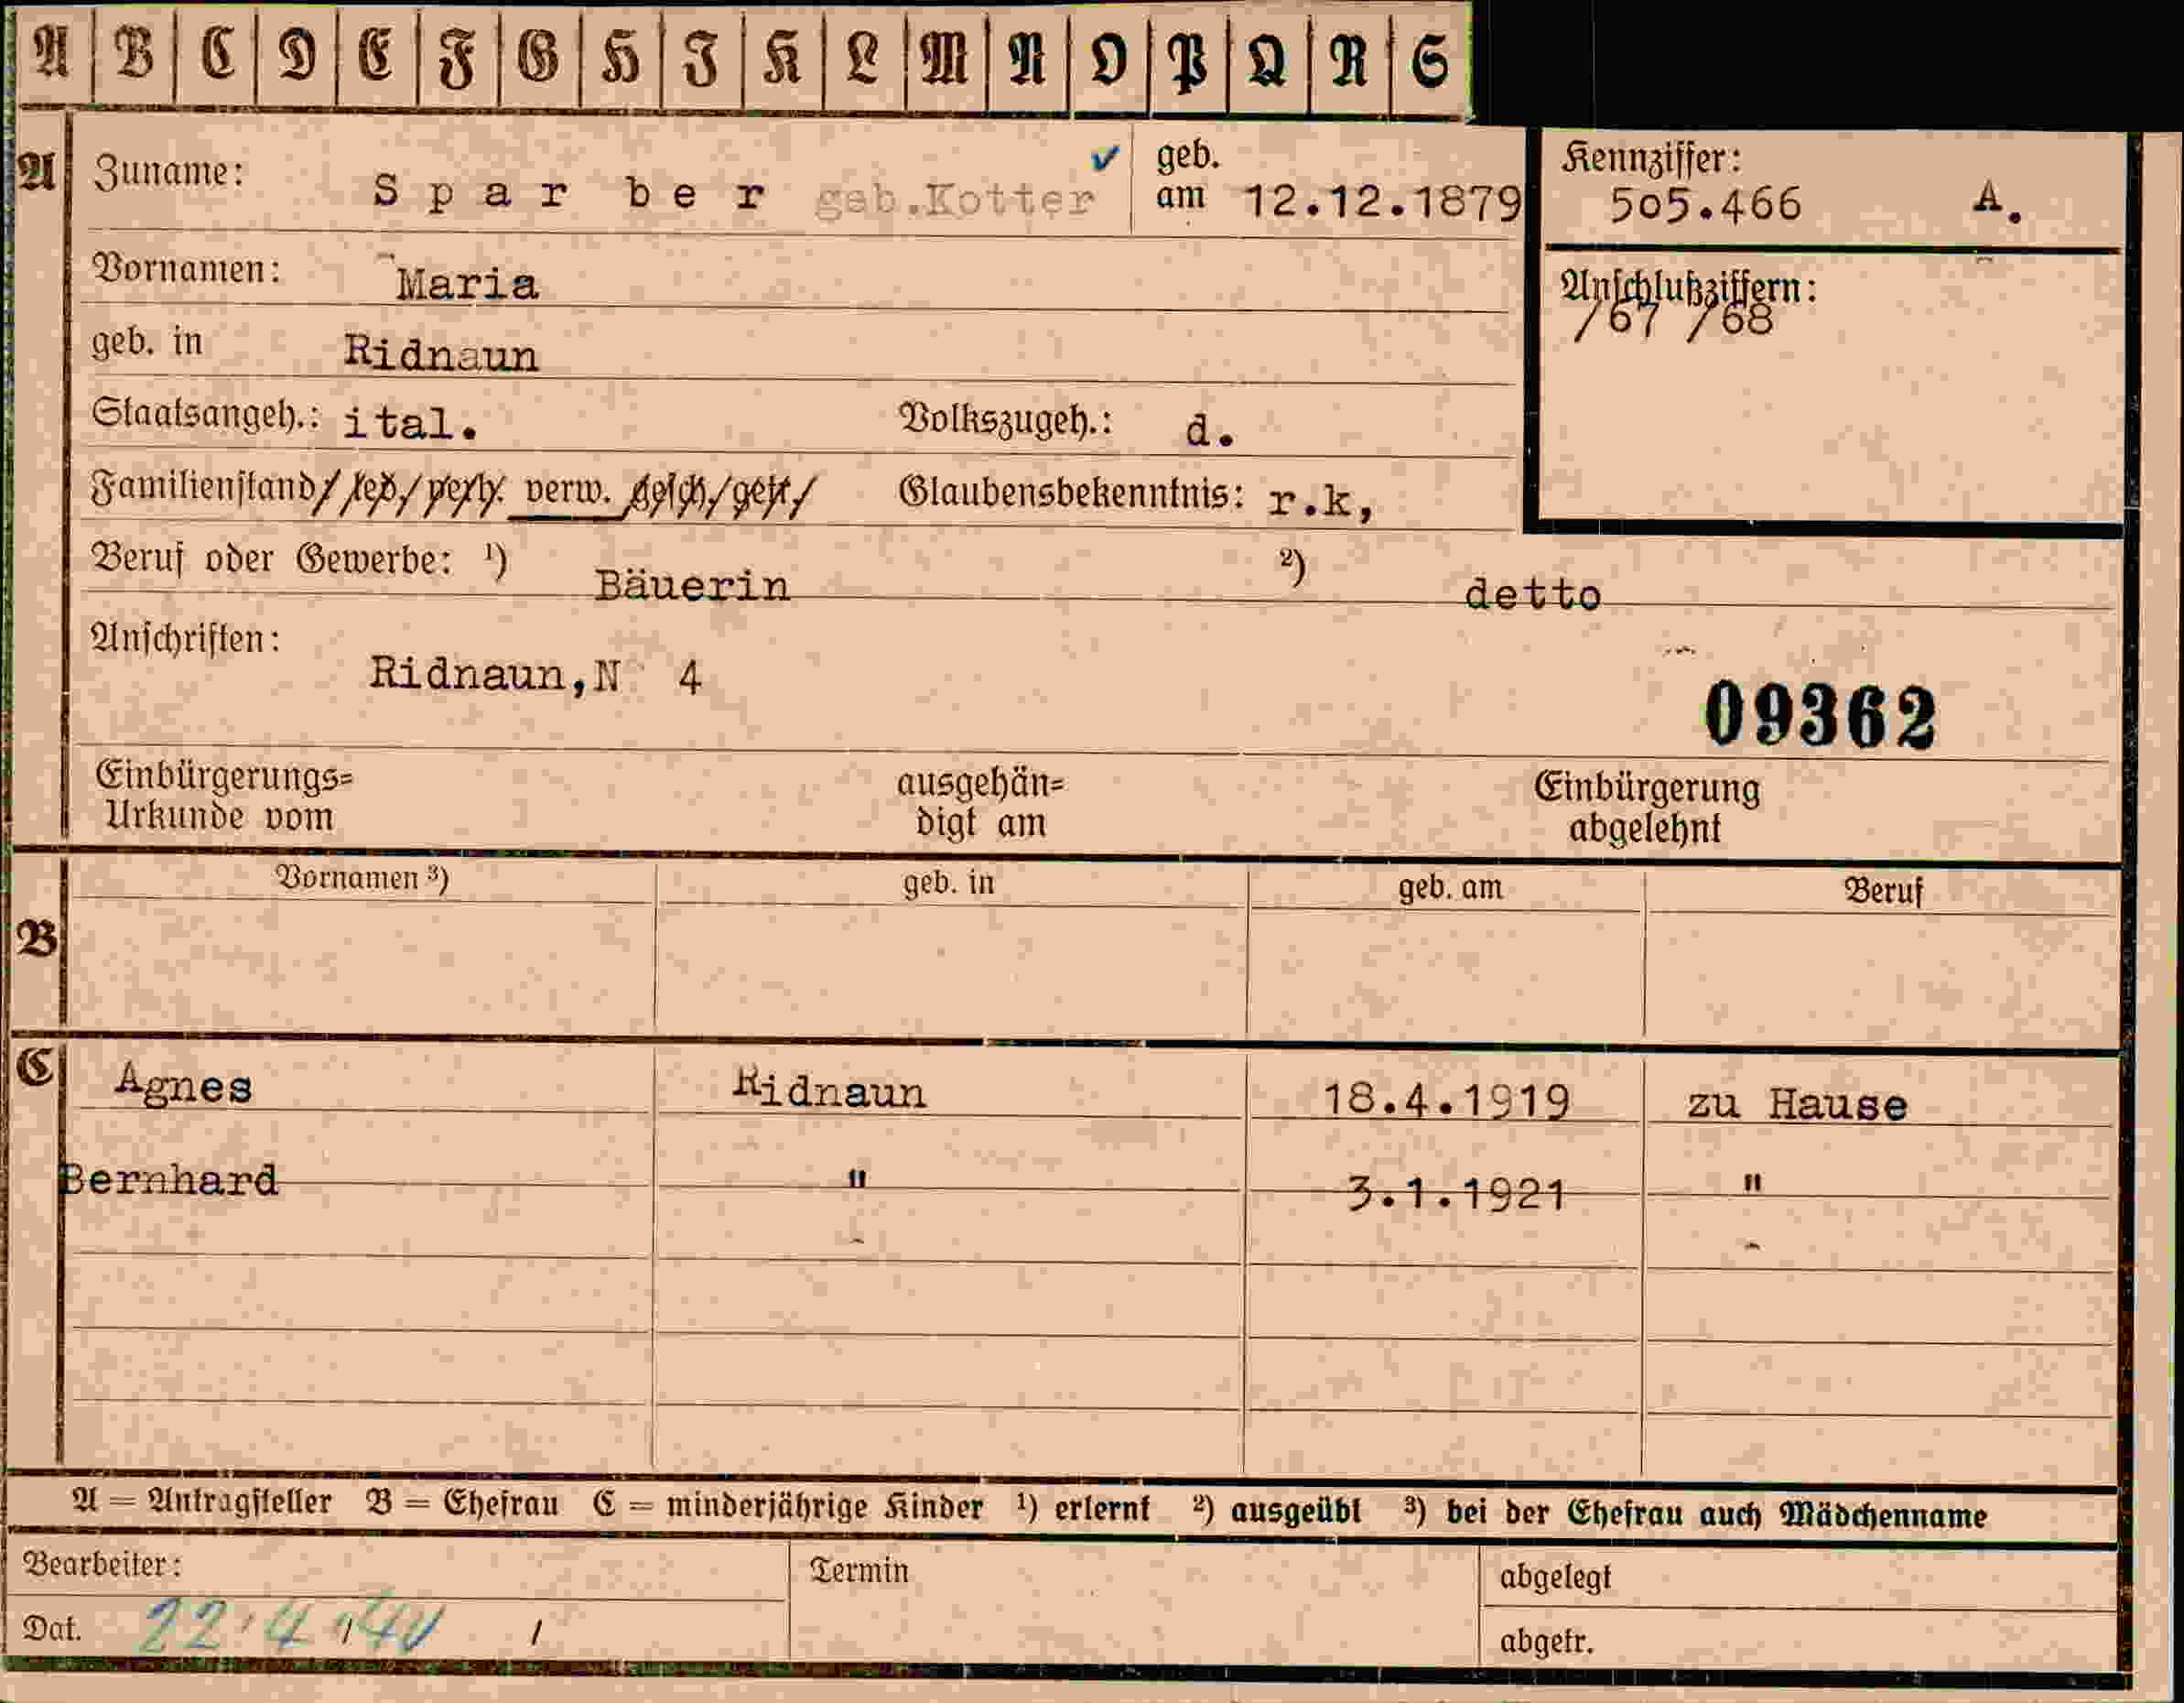 A B C D E F G H I K L M N O P Q R S
A Zuname: Sparber geb.Kotter geb. am 12.12.1879
Kennziffer: 505.466 A.
Vornamen: Maria
Anschlußziffern: /67 /68
geb. in Ridnaun
Staatsangeh.: ital. Volkszugeh.: d.
Familienstand/ led/ verh. verw. gesch/ getr/ Glaubensbekenntnis: r.k,
Beruf oder Gewerbe: ¹) Bäuerin ²) detto
Anschriften: Ridnaun,N 4
09362
Einbürgerungs= ausgehän= Einbürgerung
Urkunde vom digt am abgelehnt
Vornamen ³) geb. in geb. am Beruf
B
C Agnes Ridnaun 18.4.1919 zu Hause
Bernhard " 3.1.1921 "
A = Antragsteller B = Ehefrau C = minderjährige Kinder ¹) erlernt ²) ausgeübt ³) bei der Ehefrau auch Mädchenname
Bearbeiter: Termin abgelegt
Dat. 22.4.40 / abgetr.